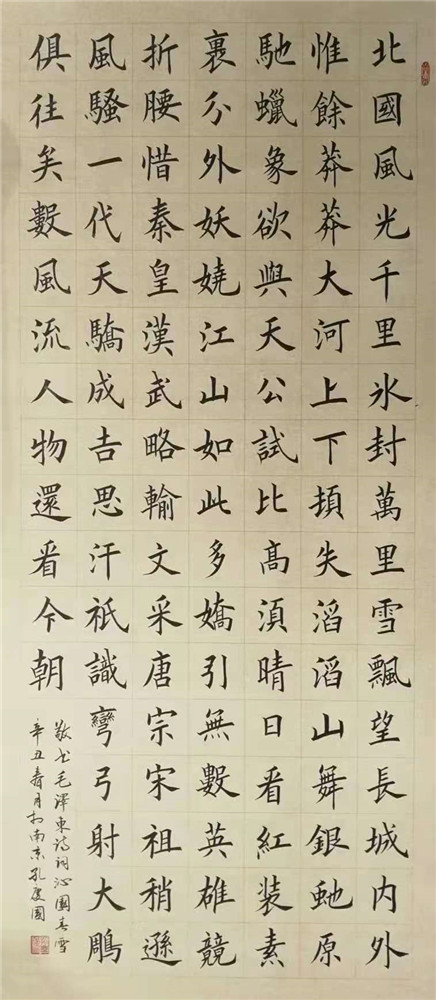 北國風光千里氷封萬里雪飄望長城内外
惟餘莽莽大河上下頓失滔滔山舞銀虵原
馳蠟象欲與天公試比髙須晴日看紅装素
裹分外妖嬈江山如此多嬌引無數英雄競
折腰惜秦皇漢武略輸文采唐宗宋祖稍遜
風騷一代天驕成吉思汗祇識彎弓射大鵰
俱往矣數風流人物還看今朝
敬书毛泽東诗词沁園春雪
辛丑春月於南京孔國